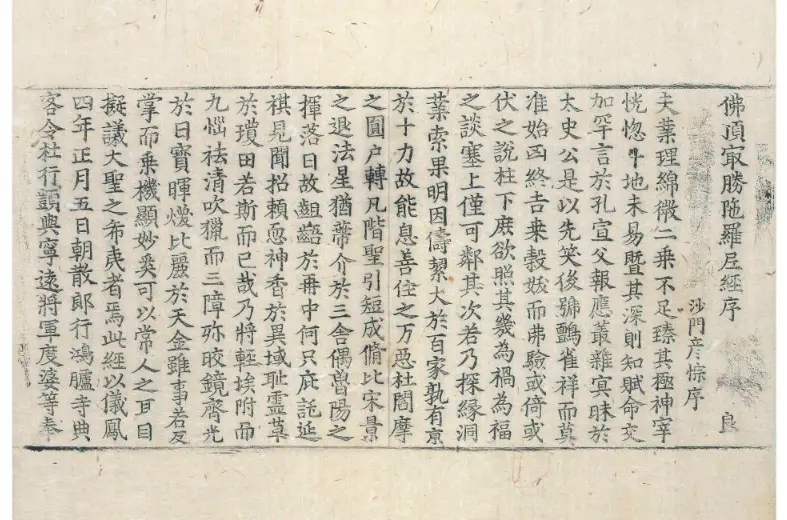 佛頂㝡勝陁羅尼經序 良
沙門彦悰序
夫業理綿微二乗不足臻其極神宰
恍惚十地未易曁其深則知賦命交
加罕言於孔宣父報應叢雜冥昧於
太史公是以先笑後號鸇雀祥而莫
准始凶終吉乗穀妭而弗驗或倚或
伏之說柱下庶欲照其幾為禍為福
之談塞上僅可鄰其次若乃探縁洞
業索果明因儔絜大於百家孰有京
於十力故能息善住之万惡杜閻摩
之圓户轉凡階聖引短成脩比宋景
之退法星猶蔕介於三舎偶曽陽之
揮落日故齟齬於再中何只庇託延
祺見聞招頼忽神香於異域耻靈草
於瓊田若斯而已哉乃將輕埃附而
九惱祛清吹獵而三障弥晈鏡齊光
於日寶暉煖比麗於天金雖事若反
掌而乗機顯妙奚可以常人之耳目
擬議大聖之希夷者焉此經以儀鳳
四年正月五日朝散郎行鴻臚寺典
客令杜行顗與寧遠將軍度婆等奉